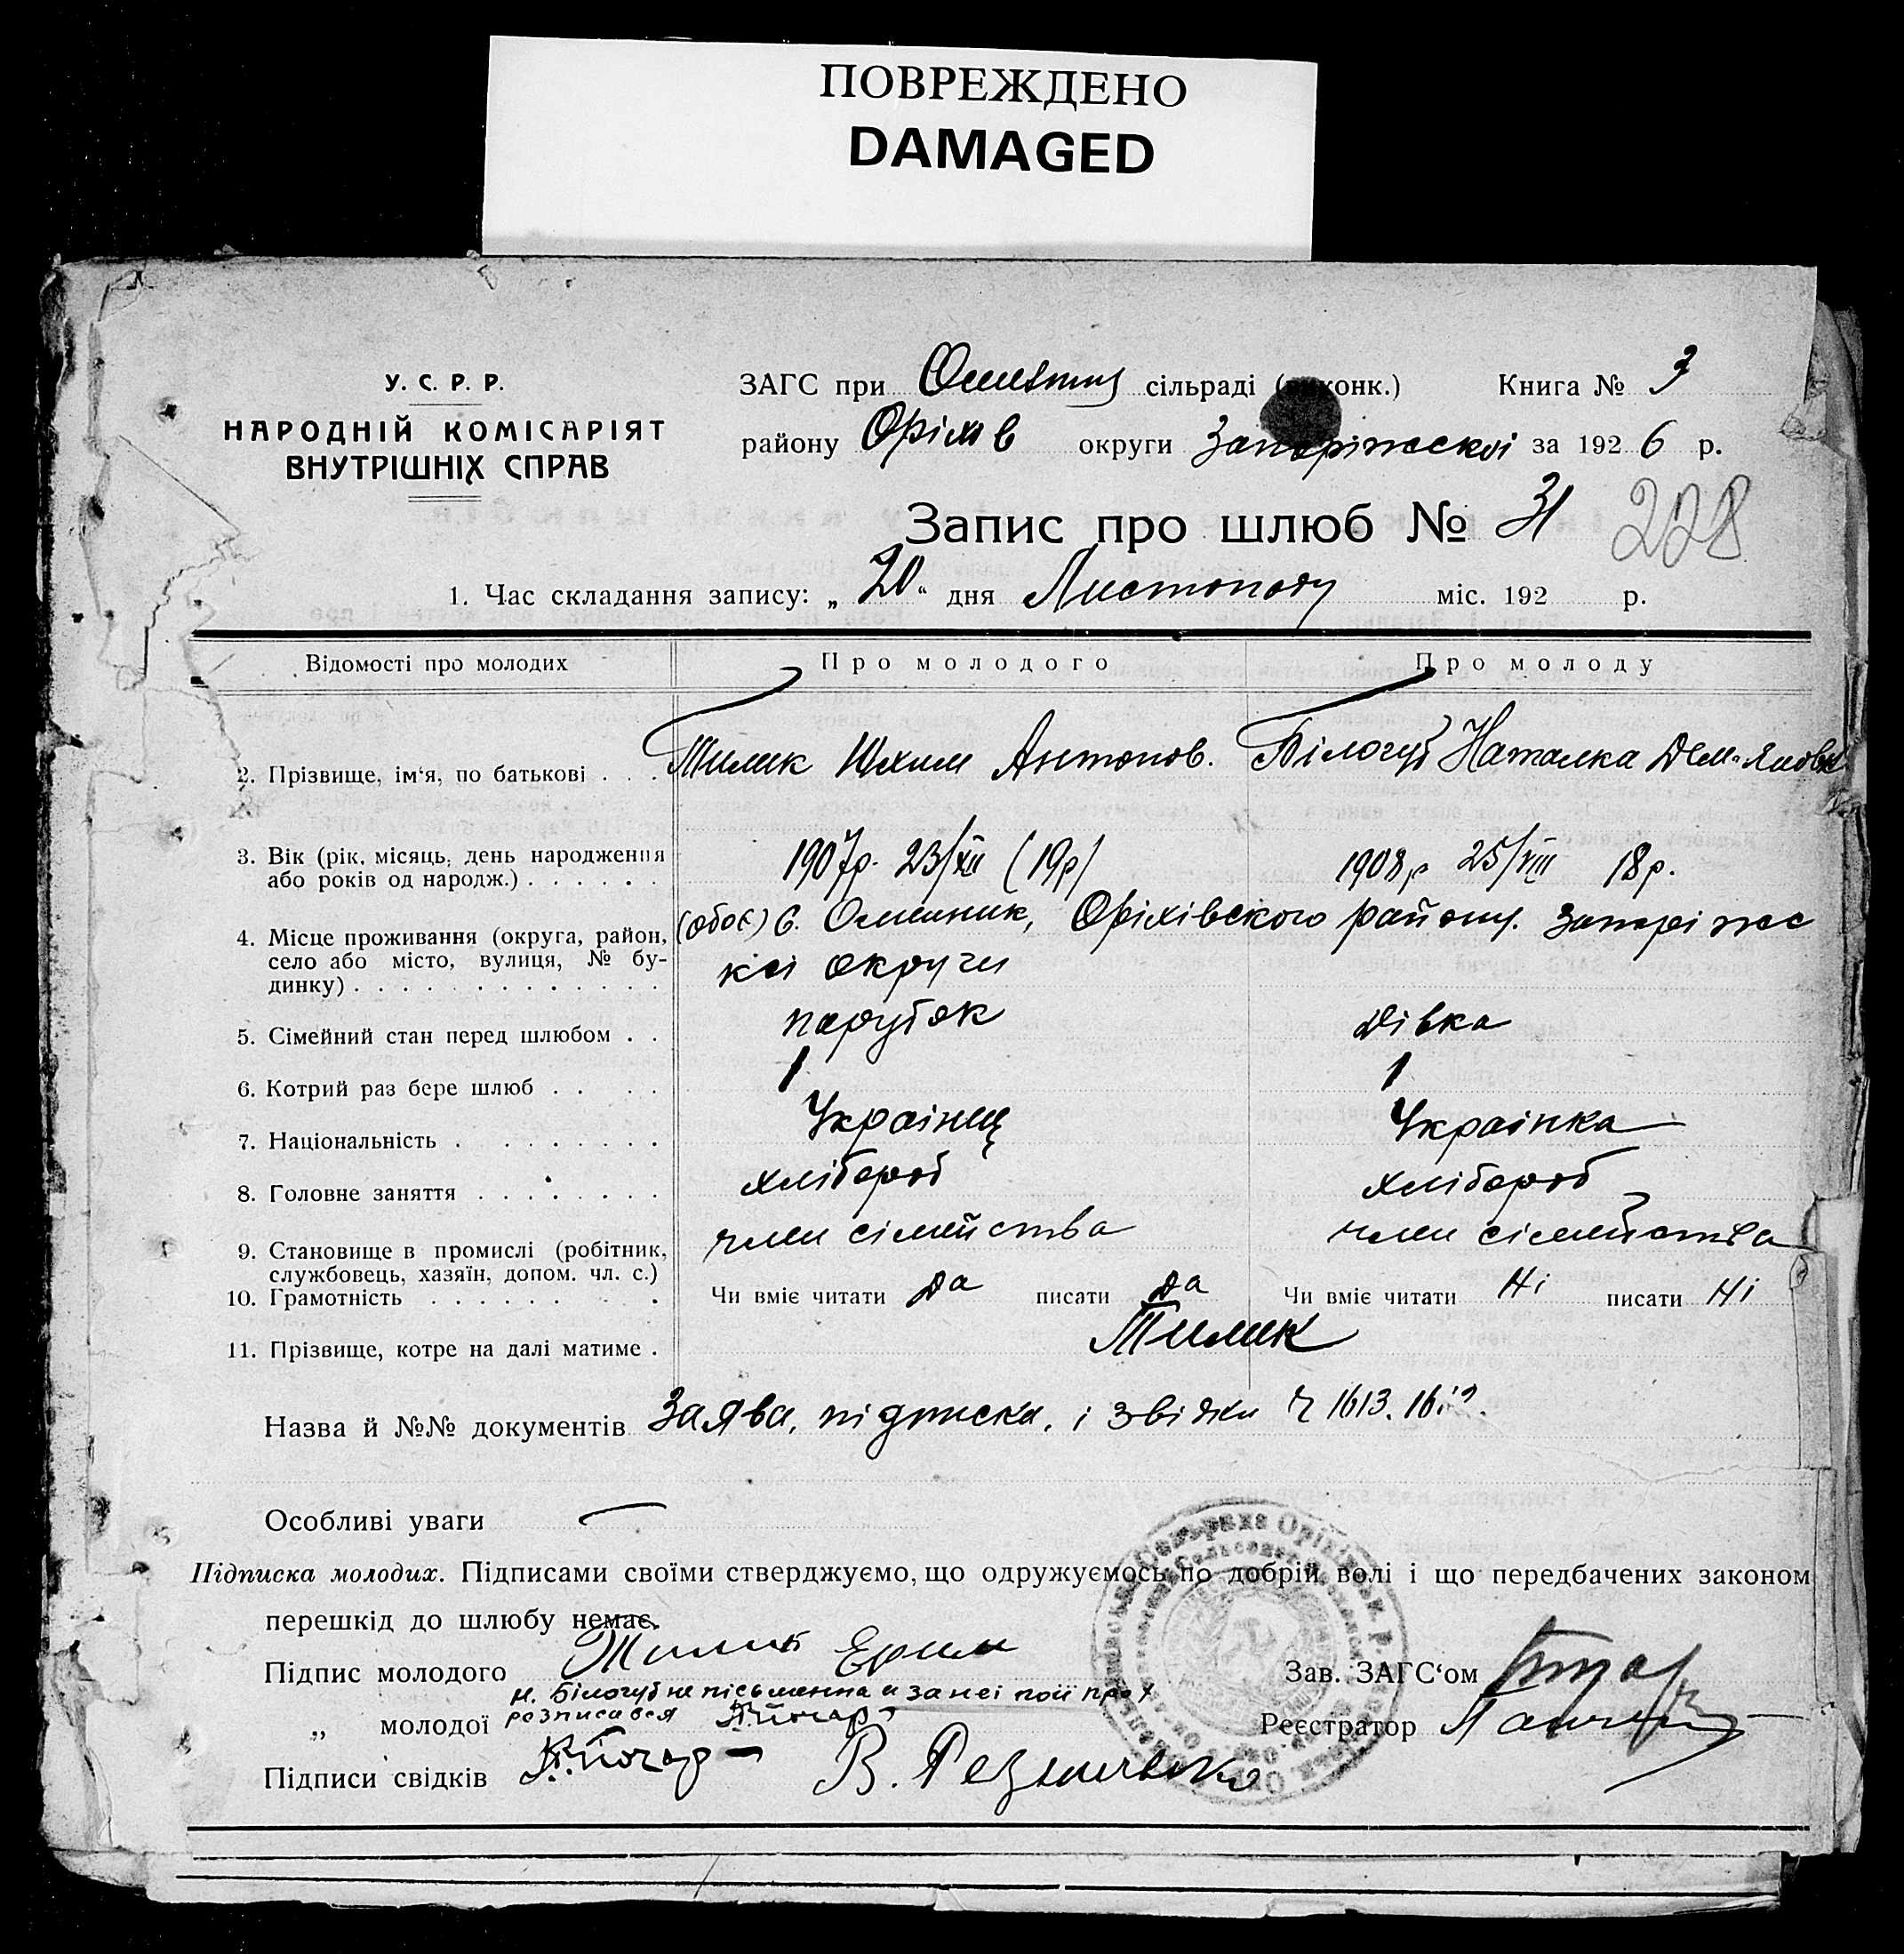 ПОВРЕЖДЕНО
DAMAGED
У. С. Р. Р.
НАРОДНІЙ КОМІСАРІЯТ
ВНУТРІШНІХ СПРАВ
ЗАГС при сільраді ( конк.) Книга № 3
району Оріхів округи Запоріжської за 1926 р.
Запис про шлюб № 31 228
1. Час складання запису: „ 20 “ дня Листопаду міс. 192 р.
Відомості про молодих Про молодого Про молоду
2. Прізвище, ім‘я, по батькові . . . Тилик Юхим Антонов. Білогуб Наталка Дем'яновн
3. Вік (рік, місяць, день народження
або років од народж.) . . . . . . 1907р. 23/XII (19р) 1908р 25/VIII 18р.
4. Місце проживання (округа, район,
село або місто, вулиця, № бу-
динку) . . . . . . . . . . . . . .
(обоє) с. Омельник, Оріхівського району. Запоріжс
кої округи
5. Сімейний стан перед шлюбом . . парубок дівка
6. Котрий раз бере шлюб . . . . 1 1
7. Національність . . . . . . . . Українец Українка
8. Головне заняття . . . . . . . . хлібороб хлібороб
9. Становище в промислі (робітник,
службовець, хазяїн, допом. чл. с.) член сімейства член сімейства
10. Грамотність . . . . . . . . Чи вміє читати да писати да Чи вміє читати Ні писати Ні
11. Прізвище, котре на далі матиме . Тилик
Назва й №№ документів Заява, підписка, і звідки Ч 1613.
Особливі уваги —
Підписка молодих. Підписами своїми стверджуємо, що одружуємось по добрій волі і що передбачених законом
перешкід до шлюбу немає.
Підпис молодого Тилик Ефим Зав. ЗАГС‘ом
н. Білогуб не письменна и за неі поіі прох
„ молодої розписався Реєстратор
Підписи свідків В.